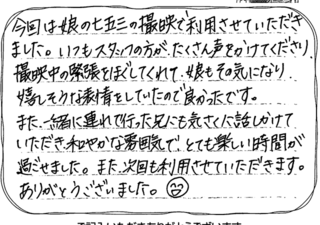 今回は娘の七五三の撮影で利用させていただき
ました。いつもスタッフの方がたくさん声をかけてくださり、
撮影中の緊張をほぐしてくれて、娘もその気になり
嬉しそうな表情をしていたので良かったです。
また、一緒に連れて行った兄にも気さくに話しかけて
いただき、和やかな雰囲気で、とても楽しい時間が
過ごせました。また、次回も利用させていただきます。
ありがとうございました。